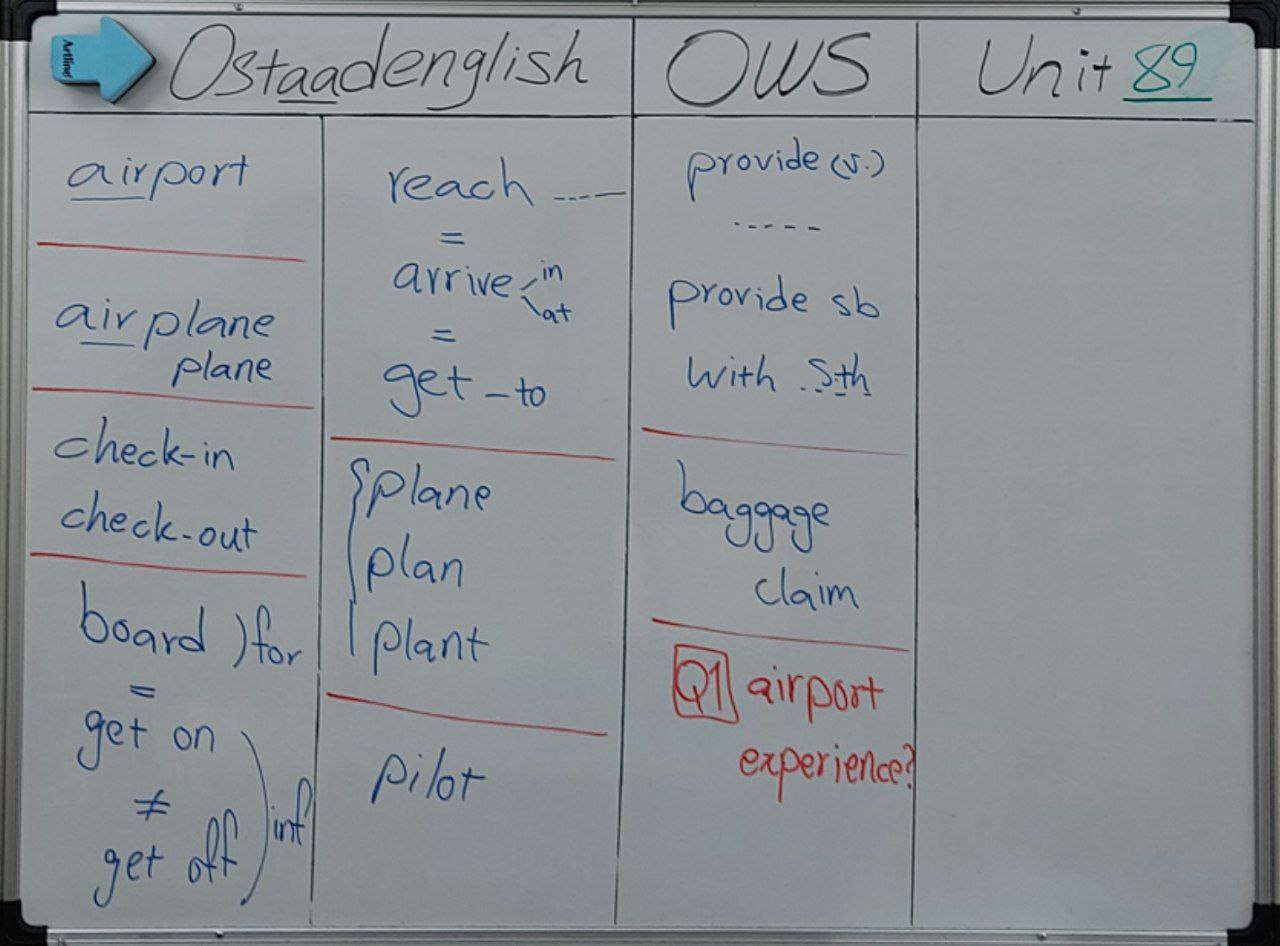 Artline
Ostaadenglish
OWS
Unit 89
airport
airplane
plane
check-in
check-out
board ) for
=
get on
≠
get off
inf
reach ----
=
arrive in
at
=
get - to
plane
plan
plant
pilot
provide (v.)
-----
provide sb
with .Sth
baggage
claim
Q1 airport
experience?